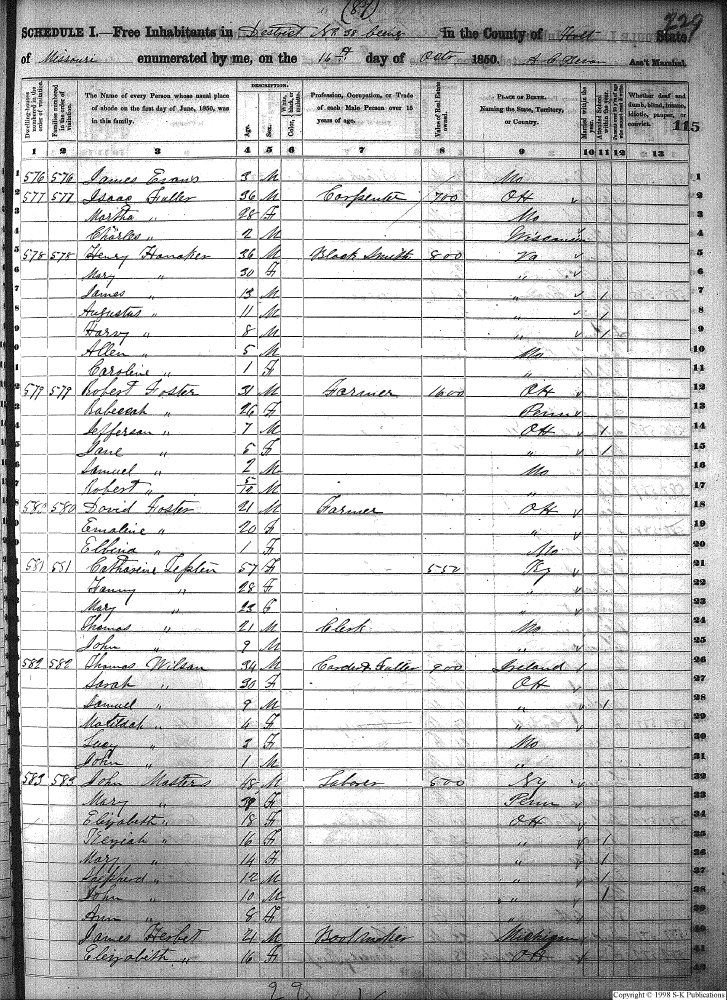 (84)
229
SCHEDULE I.—Free Inhabitants in District No 38 being in the County of Holt State
of Missouri enumerated by me, on the 16th day of Octr 1850. Ass't Marshal.
115
DESCRIPTION.
Dwelling-houses numbered in the order of visitation.
Families numbered in the order of visitation.
The Name of every Person whose usual place of abode on the first day of June, 1850, was in this family.
Age.
Sex.
Color, White, black, or mulatto.
Profession, Occupation, or Trade of each Male Person over 15 years of age.
Value of Real Estate owned.
PLACE OF BIRTH. Naming the State, Territory, or Country.
Married within the year.
Attended School within the year.
Whether deaf and dumb, blind, insane, idiotic, pauper, or convict.
1 2 3 4 5 6 7 8 9 10 11 12 13
1 576 576 James Evans 3 M Mo 1
2 577 577 Isaac Fuller 36 M Carpenter 700 OH 2
3 Martha " 28 F Mo 3
4 Charles " 2 M Wisconsin 4
5 578 578 Henry Hanaker 36 M Black Smith 800 Va 5
6 Mary " 30 F " 6
7 James " 13 M " 1 7
8 Augustus " 11 M " 1 8
9 Harvy " 8 M " 1 9
10 Allen " 5 M Mo 10
11 Caroline " 1 F " 11
12 579 579 Robert Foster 31 M Farmer 1600 OH 12
13 Rabecah " 26 F Penn 13
14 Jefferson " 7 M OH 1 14
15 Jane " 5 F " 1 15
16 Samuel " 2 M Mo 16
17 Robert " 5/12 M " 17
18 580 580 David Foster 21 M Farmer OH 18
19 Emaline " 20 F " 19
20 Elbina " 1 F Mo 20
21 581 581 Catharine 57 F 550 Ky 21
22 Fanny " 28 F " 22
23 Mary " 23 F " 23
24 Thomas " 21 M Clerk Mo 24
25 John " 9 M " 25
26 582 582 Thomas Wilson 34 M Carder & Fuller 900 Ireland 26
27 Sarah " 30 F OH 27
28 Samuel " 9 M " 1 28
29 Matildah " 4 F " 29
30 Lucy " 3 F Mo 30
31 John " 1 M " 31
32 583 583 John Masters 48 M Laborer 500 Ky 32
33 Mary " 38 F Penn 33
34 Elizabeth " 18 F OH 34
35 Keziah " 16 F " 1 35
36 Mary " 14 F " 1 36
37 Shepherd " 12 M " 1 37
38 John " 10 M " 1 38
39 Ann " 8 F " 39
40 James Herbet 21 M Michigan 40
41 Elizabeth " 16 F OH 41
42
Copyright © 1998 S-K Publications